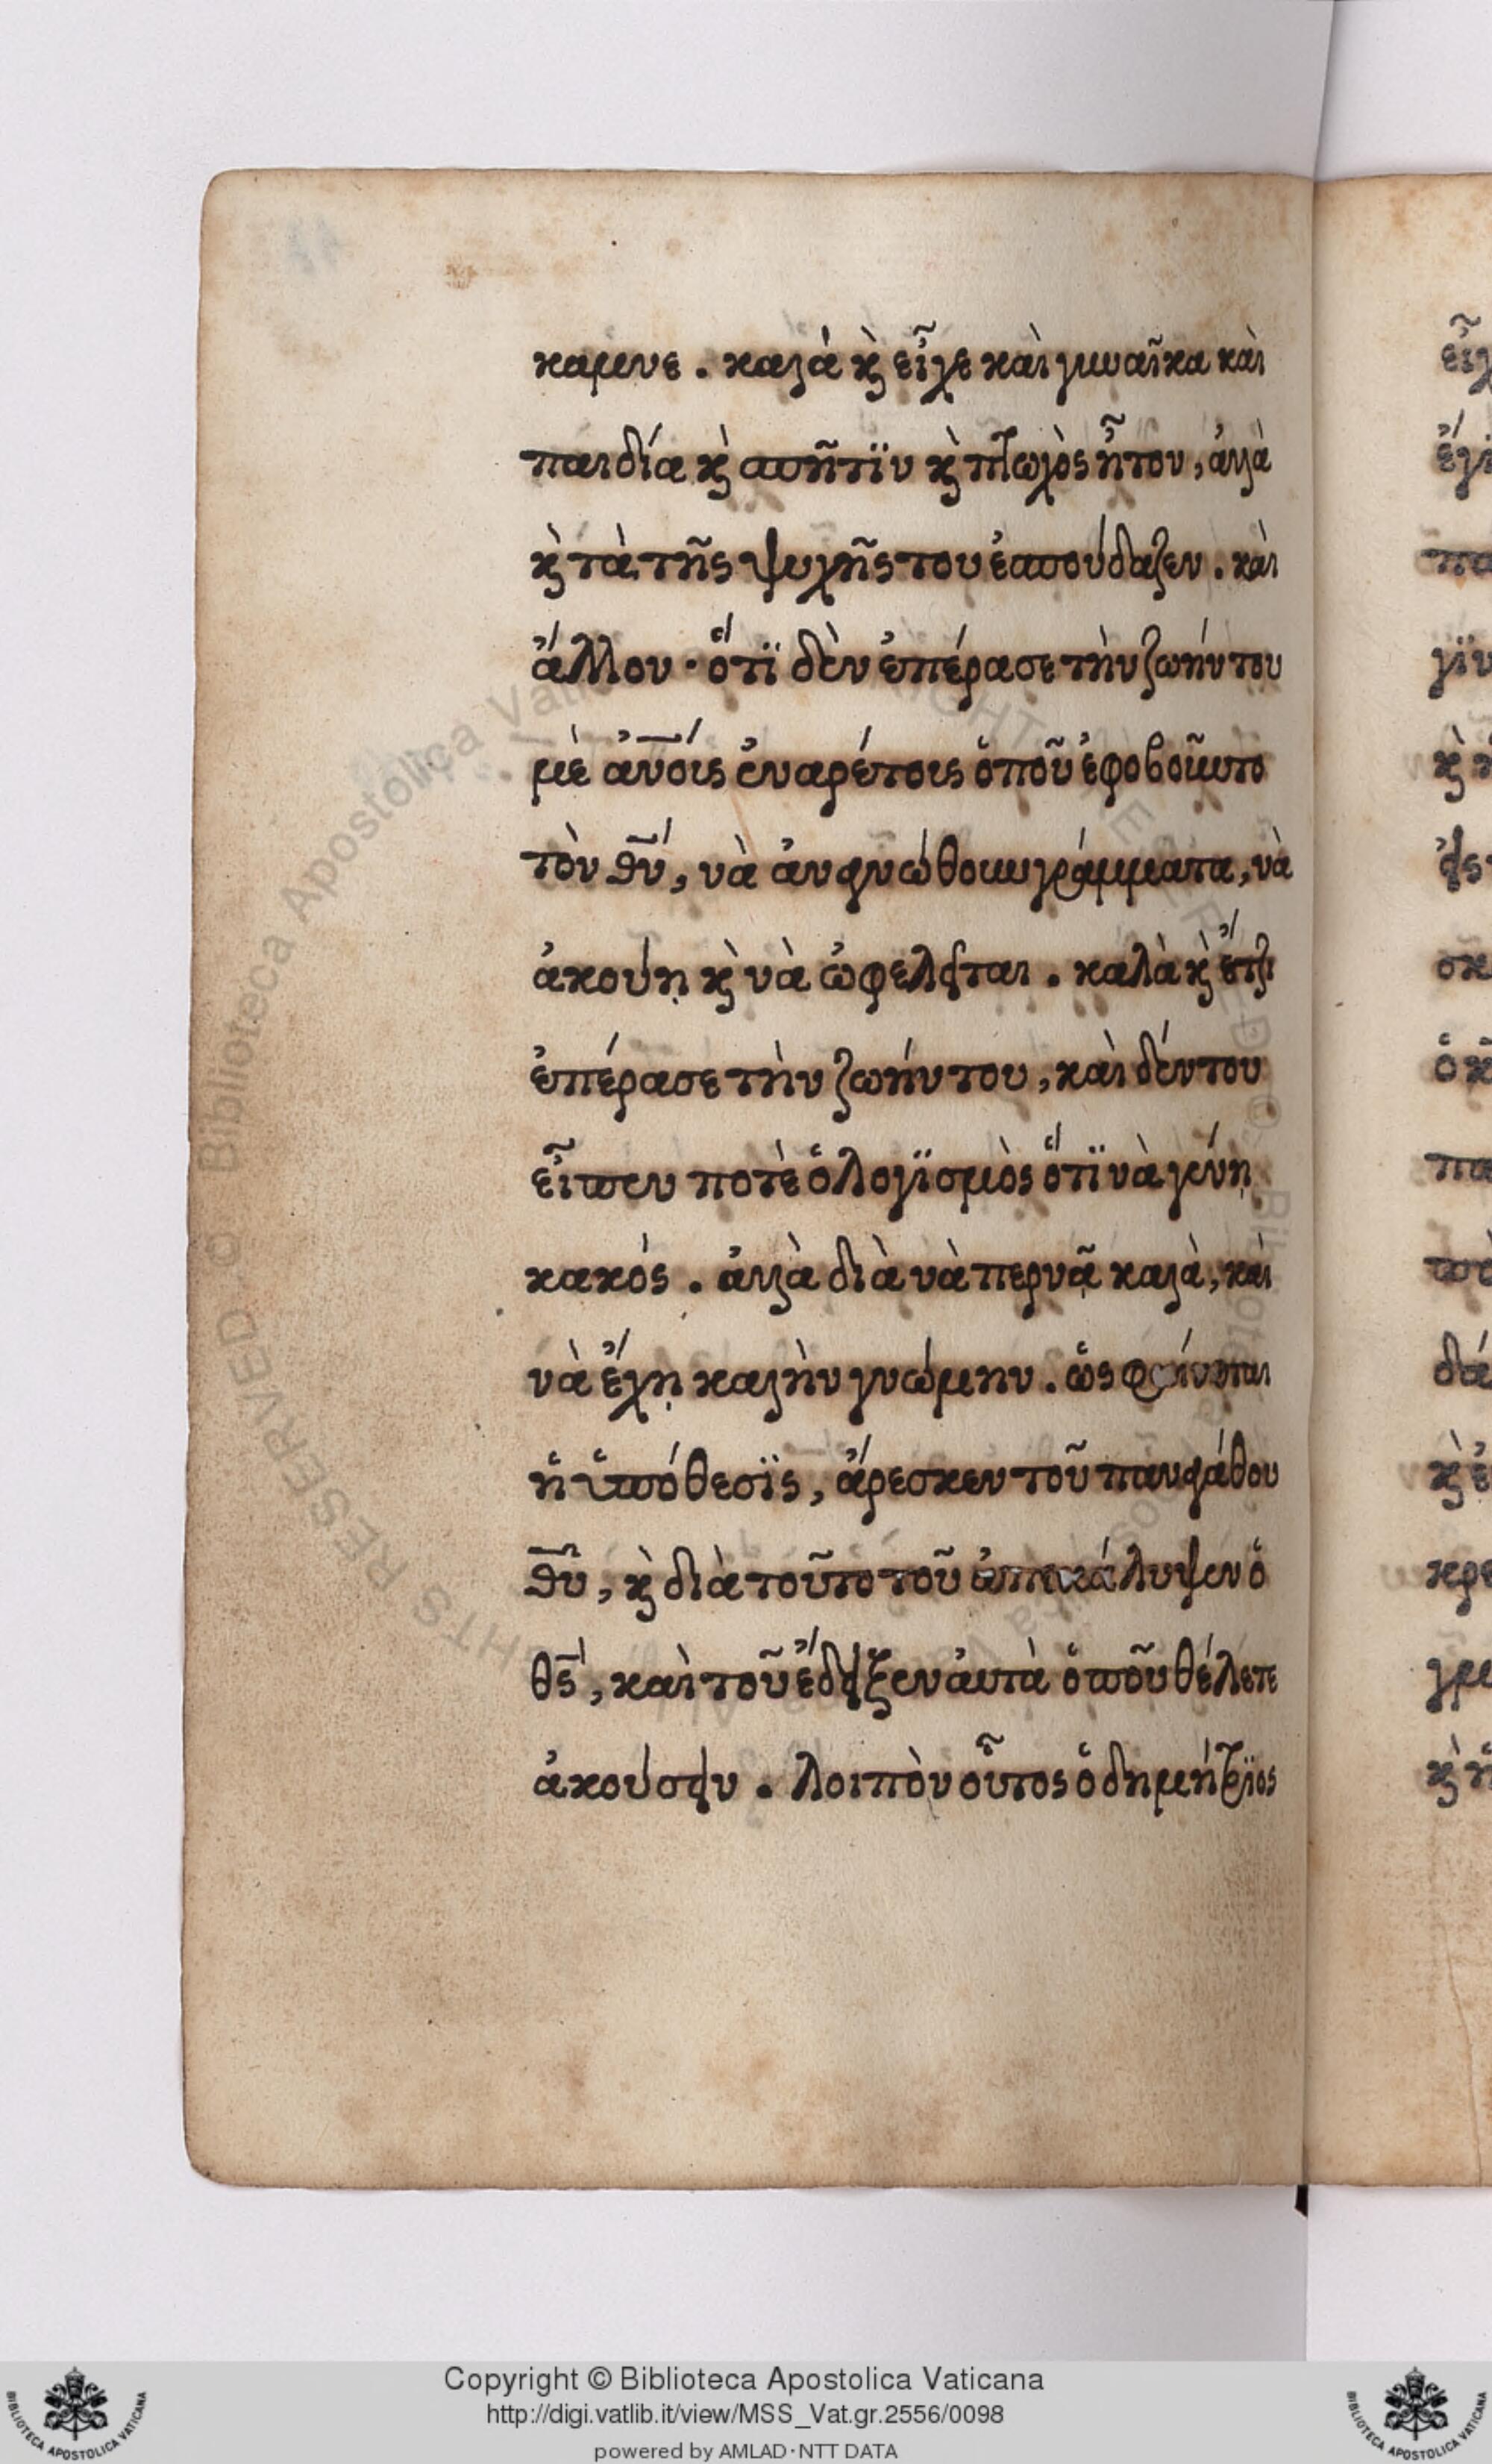 καμνε. καλά κ εἶχε καὶ γυναῖκα καὶ
παιδία κ σπῆτϊν κ πτωχὸς ἦτον, ἀλλὰ
κ τὰ τῆς ψυχῆς του ἐσπούδαζεν. καὶ
ἄλλον· ὅτϊ δὲν ἐπέρασε τὴν ζωήν του
μὲ ἀνοίς ἐναρέτοις ὁποῦ ἐφοβοῦντο
τὸν θν, νὰ ἀναγνώθουν γράμματα, νὰ
ἀκούῃ κ νὰ ὠφελεῖται. καλὰ κ ἔτζι
ἐπέρασε τὴν ζωήν του, καὶ δέν του
εἶπεν ποτὲ ὁ λογϊσμὸς ὅτϊ νὰ γένῃ
κακός. ἀλλὰ διὰ νὰ περνᾷ καλὰ, καὶ
νὰ ἔχῃ καλὴν γνώμην. ὡς φαίνεται
ἡ ὑπόθεσϊς, ἄρεσκεν τοῦ παναγάθου
θῦ, κ διὰ τοῦτο τοῦ ἀπεκάλυψεν ὁ
θς, καὶ τοῦ ἔδειξεν ἀυτὰ ὁποῦ θέλετε
ἀκούσειν. λοιπὸν οὗτος ὁ δημήτρϊος
εἶχ
ἐγι
πα
γϊν
πα
δά
κρε
Copyright © Biblioteca Apostolica Vaticana
http://digi.vatlib.it/view/MSS_Vat.gr.2556/0098
powered by AMLAD·NTT DATA